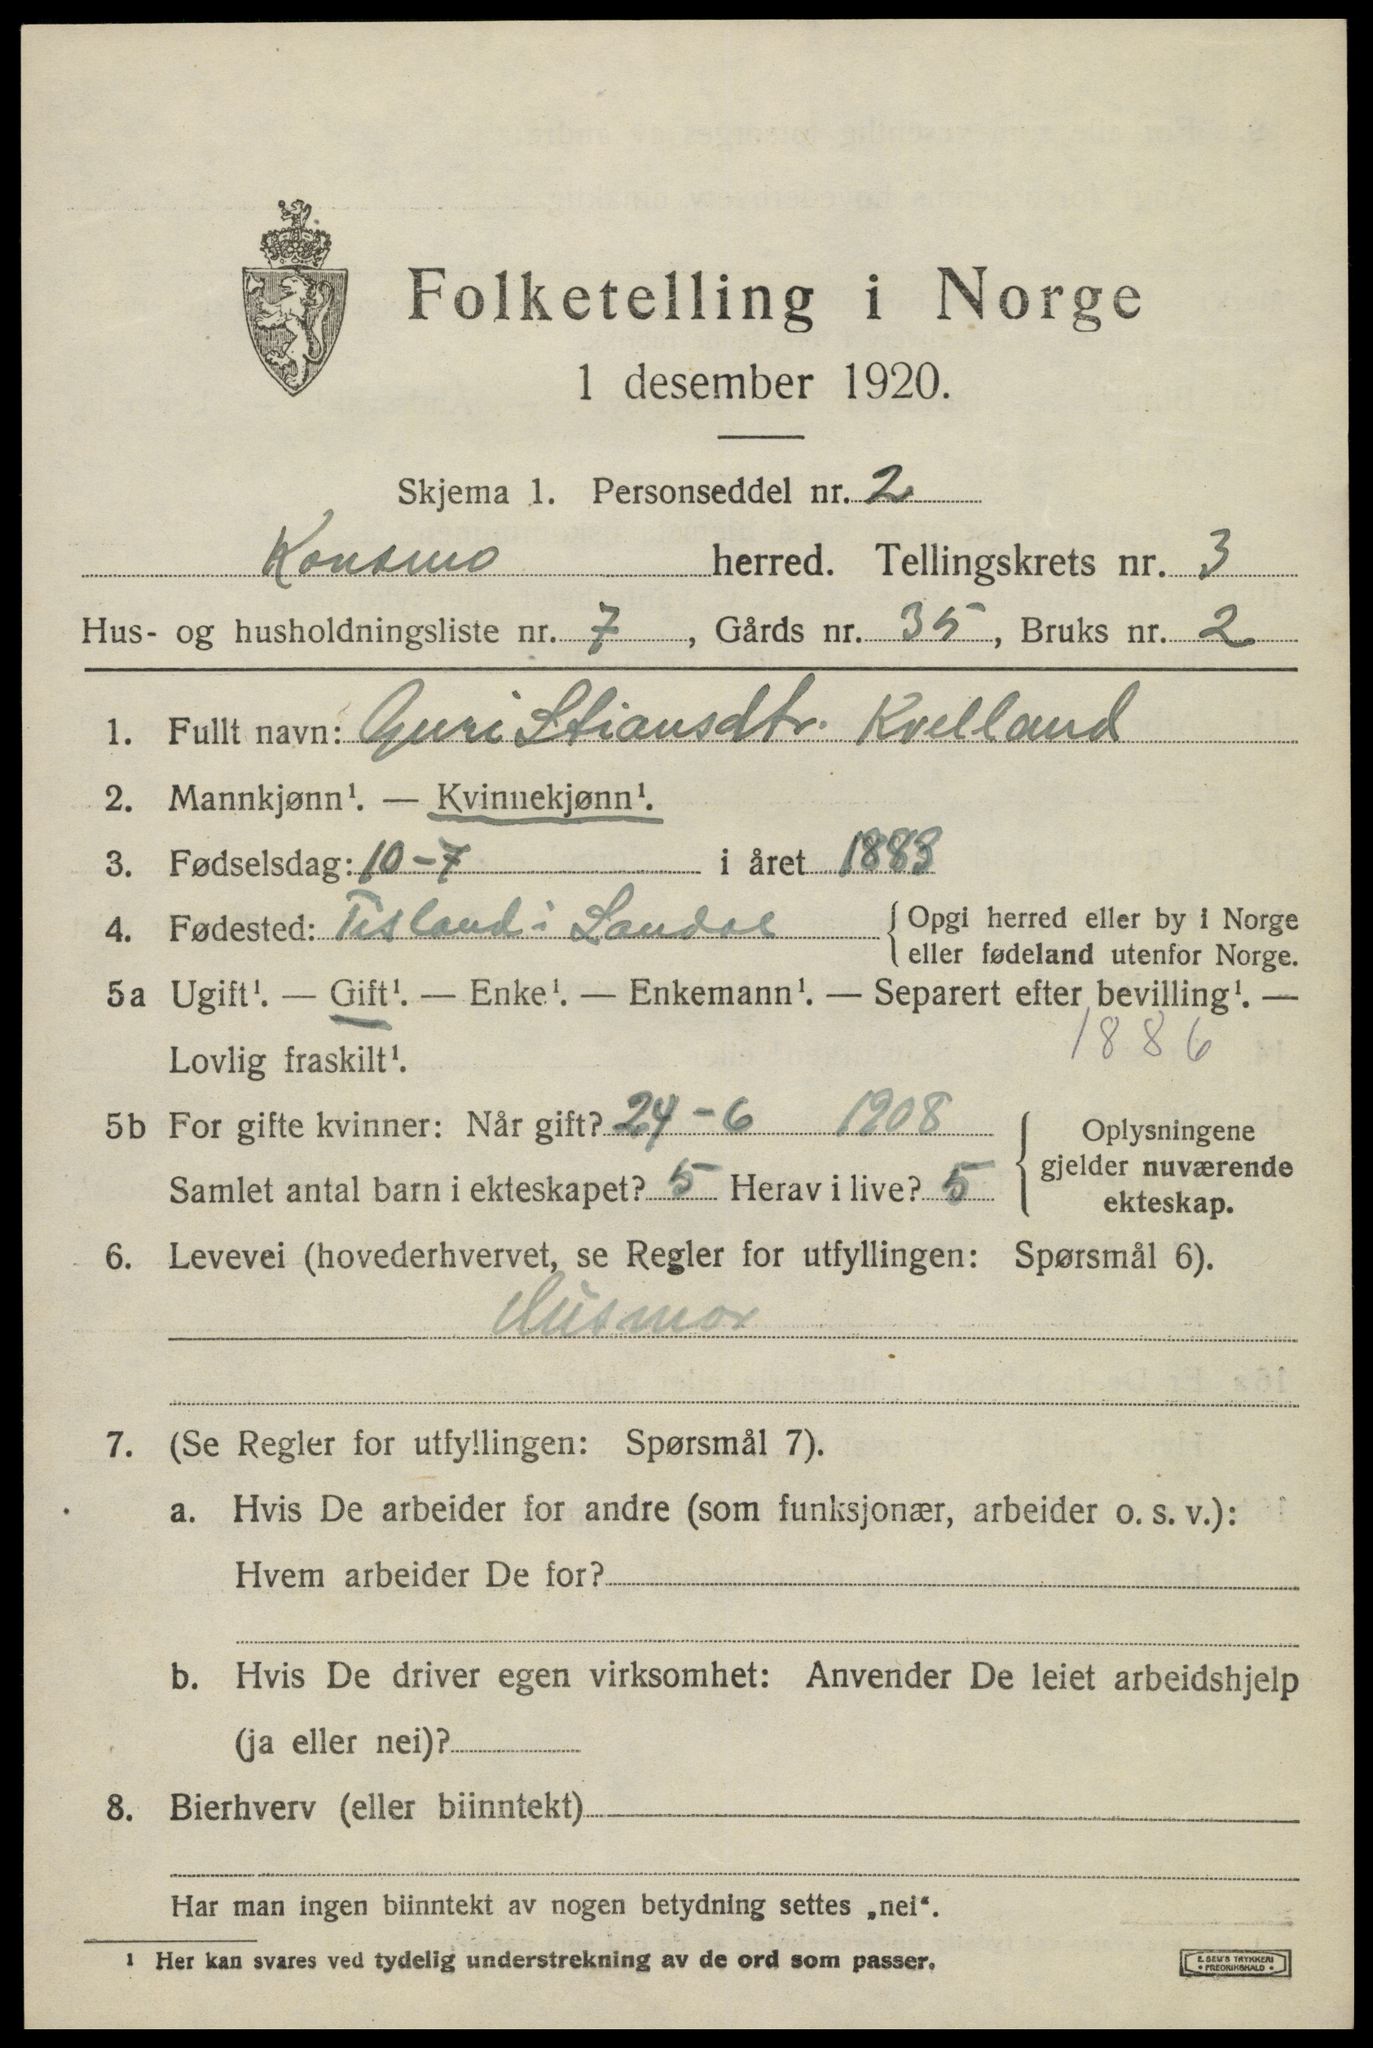 Folketelling i Norge
1 desember 1920.
Skjema 1. Personseddel nr. 2
Konsmo herred. Tellingskrets nr. 3
Hus- og husholdningsliste nr. 7, Gårds nr. 35, Bruks nr. 2
1. Fullt navn: Guri Stiansdtr. Kvelland
2. Mannkjønn¹. — Kvinnekjønn¹.
3. Fødselsdag: 10-7 i året 1883
4. Fødested: Tisland i Laudal { Opgi herred eller by i Norge
eller fødeland utenfor Norge.
5a Ugift¹. — Gift¹. — Enke¹. — Enkemann¹. — Separert efter bevilling¹. —
Lovlig fraskilt¹. 1886
5b For gifte kvinner: Når gift? 24-6 1908
Samlet antal barn i ekteskapet? 5 Herav i live? 5
{ Oplysningene
gjelder nuværende
ekteskap.
6. Levevei (hovederhvervet, se Regler for utfyllingen: Spørsmål 6).
Husmor
7. (Se Regler for utfyllingen: Spørsmål 7).
a. Hvis De arbeider for andre (som funksjonær, arbeider o. s. v.):
Hvem arbeider De for?
b. Hvis De driver egen virksomhet: Anvender De leiet arbeidshjelp
(ja eller nei)?
8. Bierhverv (eller biinntekt)
Har man ingen biinntekt av nogen betydning settes „nei“.
¹ Her kan svares ved tydelig understrekning av de ord som passer.
E. SEM'S TRYKKERI
• FREDRIKSHALD •